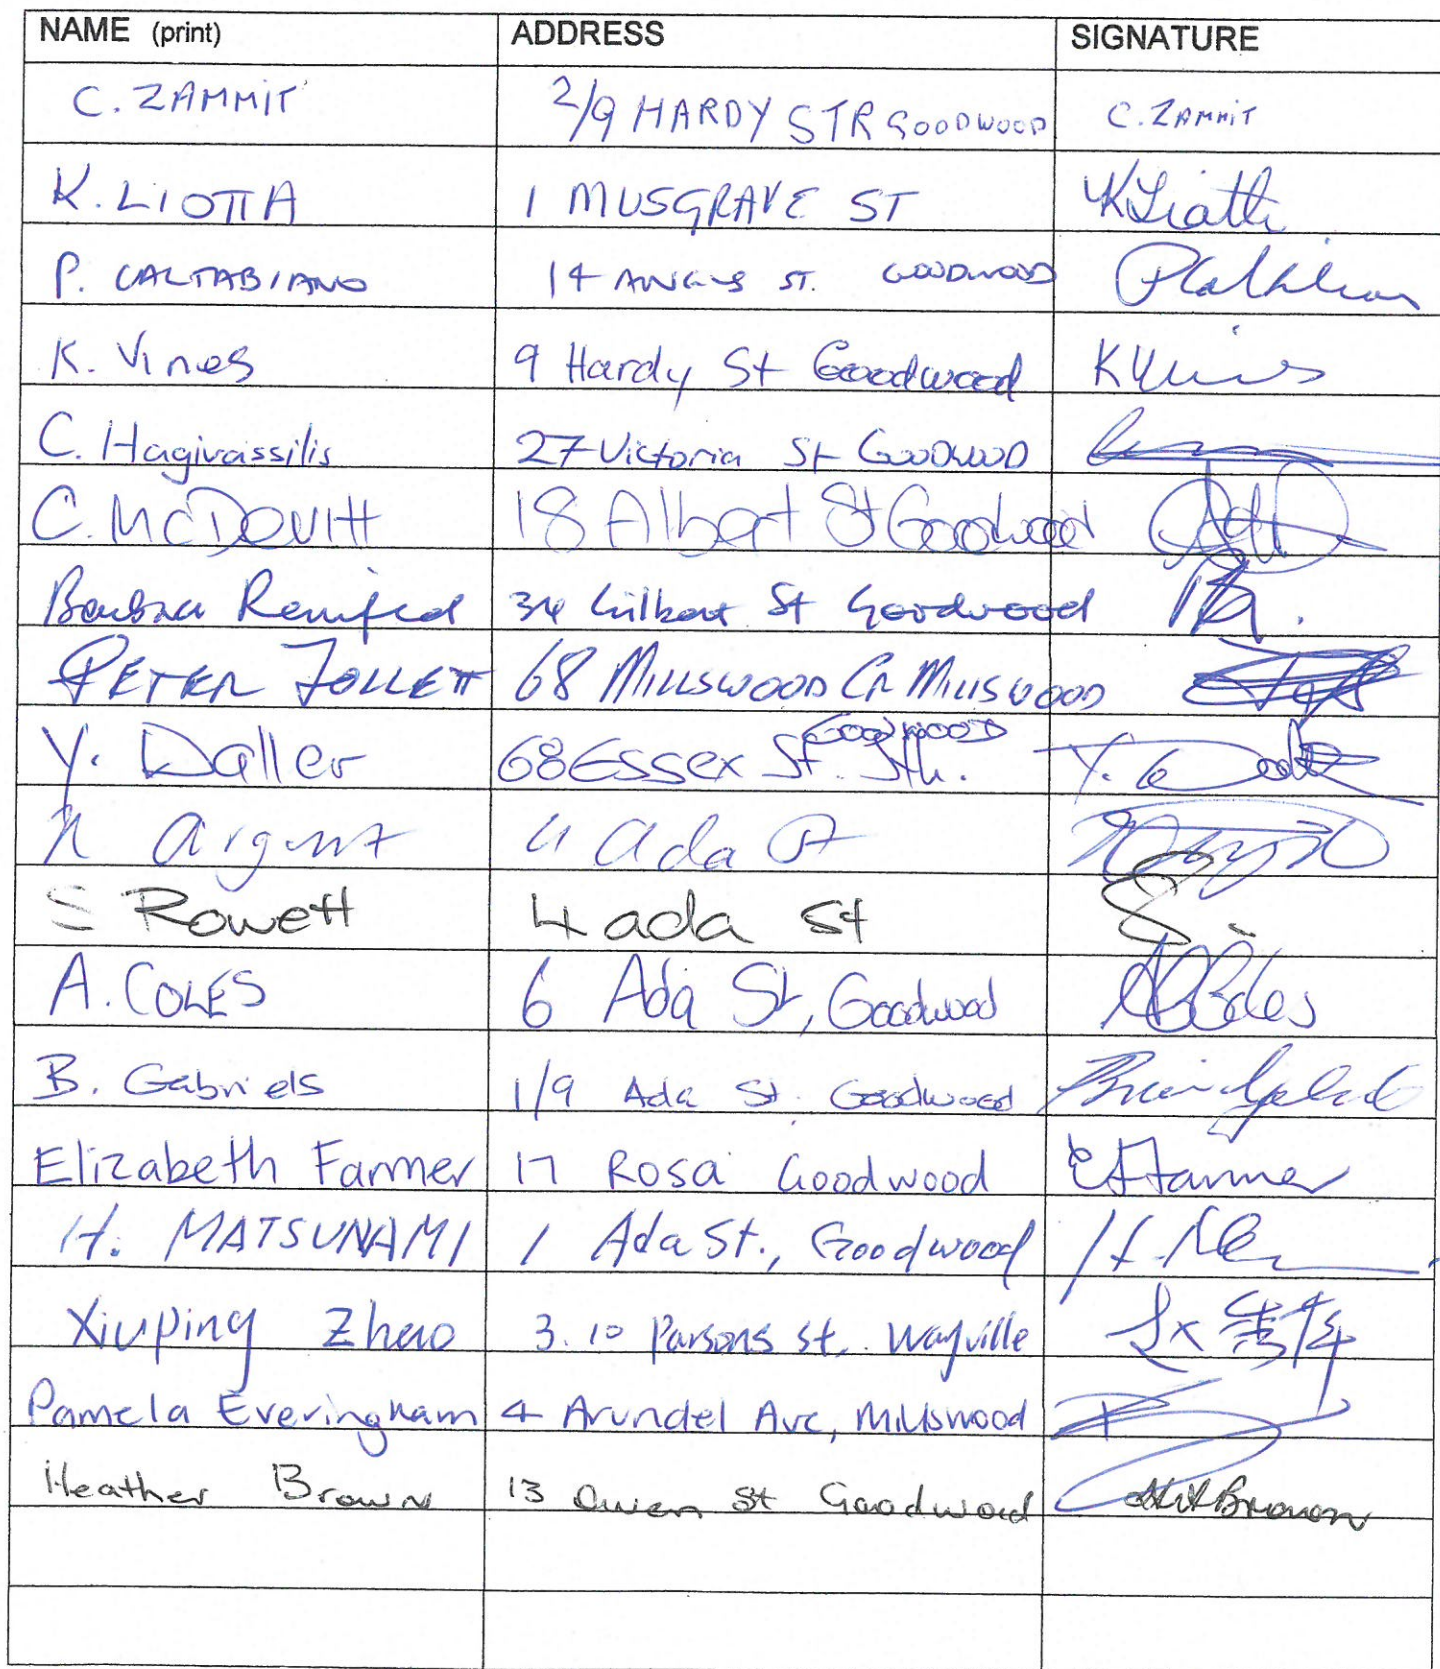 NAME (print) ADDRESS SIGNATURE
C. ZAMMIT 2/9 HARDY STR GOODWOOD C. ZAMMIT
K. LIOTTA 1 MUSGRAVE ST K Liotta
P. CALTABIANO 14 ANGUS ST. GOODWOOD
K. Vines 9 Hardy St Goodwood K Vines
C. Hagivassilis 27 Victoria St GOODWOOD
C. MCDEVITT 18 Albert St Goodwood
Barbra Renfred 34 Gilbert St Goodwood
PETER FOLLETT 68 MILLSWOOD CR MILLSWOOD
Y. Daller 68 Essex St. Sth. GOODWOOD
Argent 4 Ada St
S Rowett 4 ada st
A. COLES 6 Ada St, Goodwood A Coles
B. Gabriels 1/9 Ada St. Goodwood
Elizabeth Farmer 17 Rosa Goodwood E Farmer
H. MATSUNAMI 1 Ada St., Goodwood
Xiuping Zhao 3. 10 Parsons st. Wayville
Pamela Everingham 4 Arundel Ave, Millswood
Heather Brown 13 Owen St Goodwood Brown